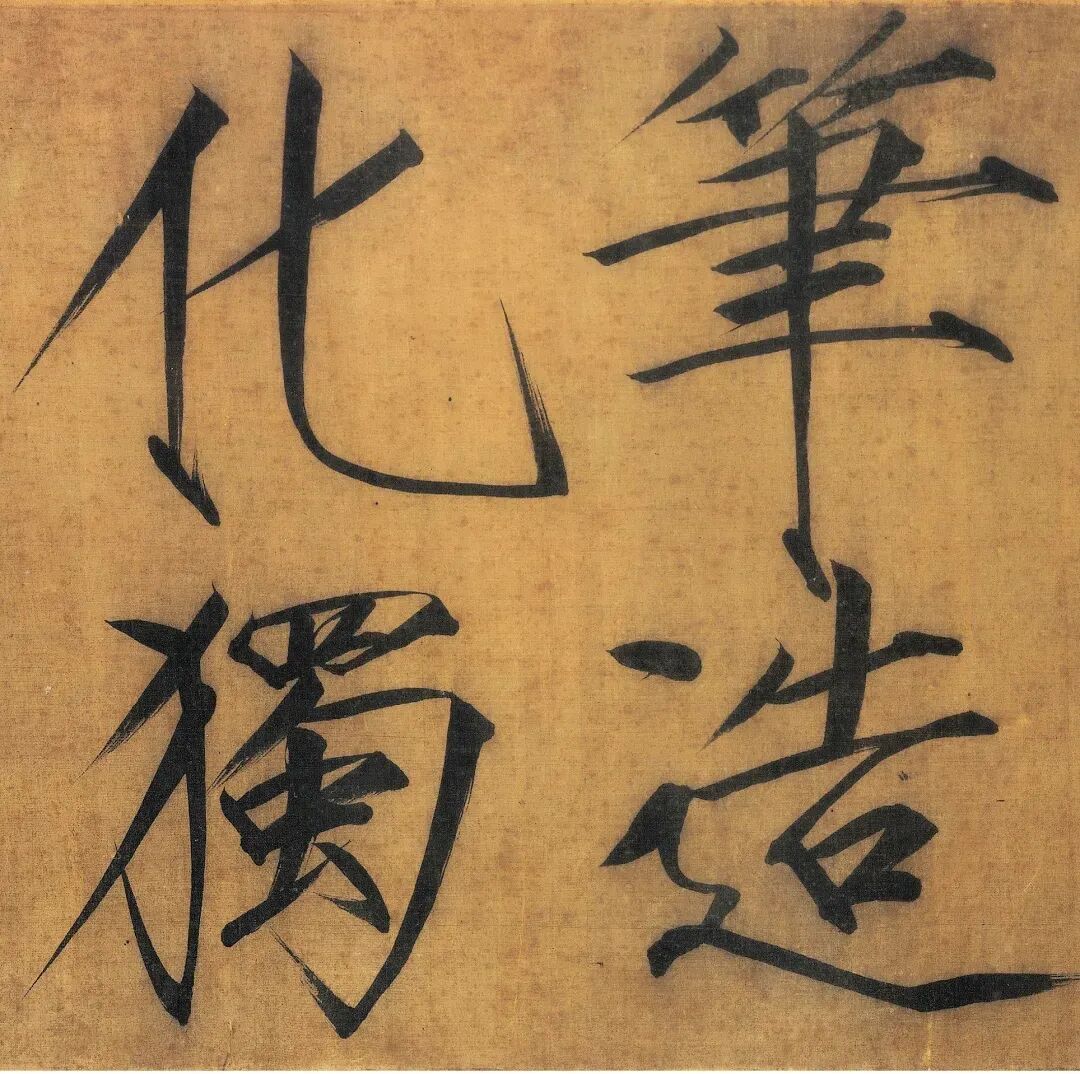 筆造
化獨